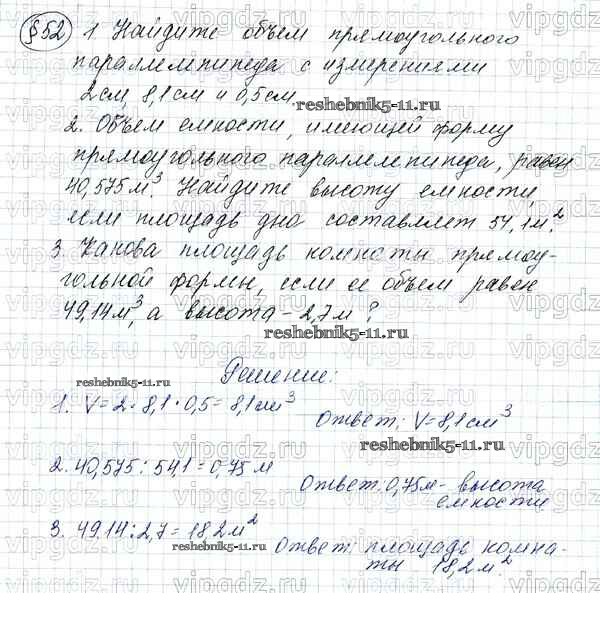 §52 1 Найдите объем прямоугольного
параллелепипеда с измерениями
2см, 8,1см и 0,5см.
reshebnik5-11.ru
2. Объем емкости, имеющей форму
прямоугольного параллелепипеда, равен
40,575м³. Найдите высоту емкости,
если площадь дна составляет 54,1м².
3. Какова площадь комнаты прямоу-
гольной формы, если ее объем равен
49,14м³, а высота - 2,7м?
reshebnik5-11.ru
Решение:
reshebnik5-11.ru
1. V = 2 · 8,1 · 0,5 = 8,1см³
Ответ: V = 8,1см³
reshebnik5-11.ru
2. 40,575 : 54,1 = 0,75 м
Ответ: 0,75м - высота
емкости
3. 49.14 : 2,7 = 18,2м²
reshebnik5-11.ru
Ответ: площадь комна-
ты 18,2м²
vipgdz.ru